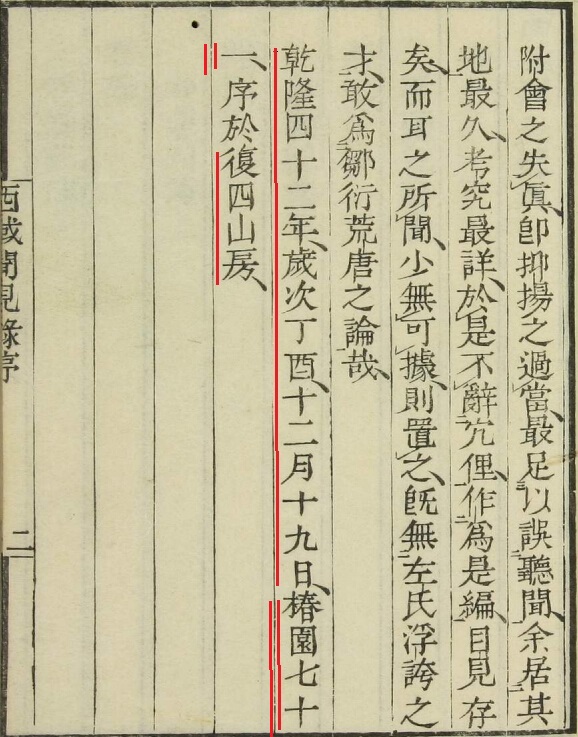 附會之失眞卽抑揚之過當最足以誤聽聞余居其
地最久考究最詳於是不辭宂俚作爲是編目見存
矣而耳之所聞少無可據則置之旣無左氏浮誇之
才敢爲鄒衍荒唐之論哉
乾隆四十二年歲次丁酉十二月十九日椿園七十
一序於復四山房
西域聞見錄序
二